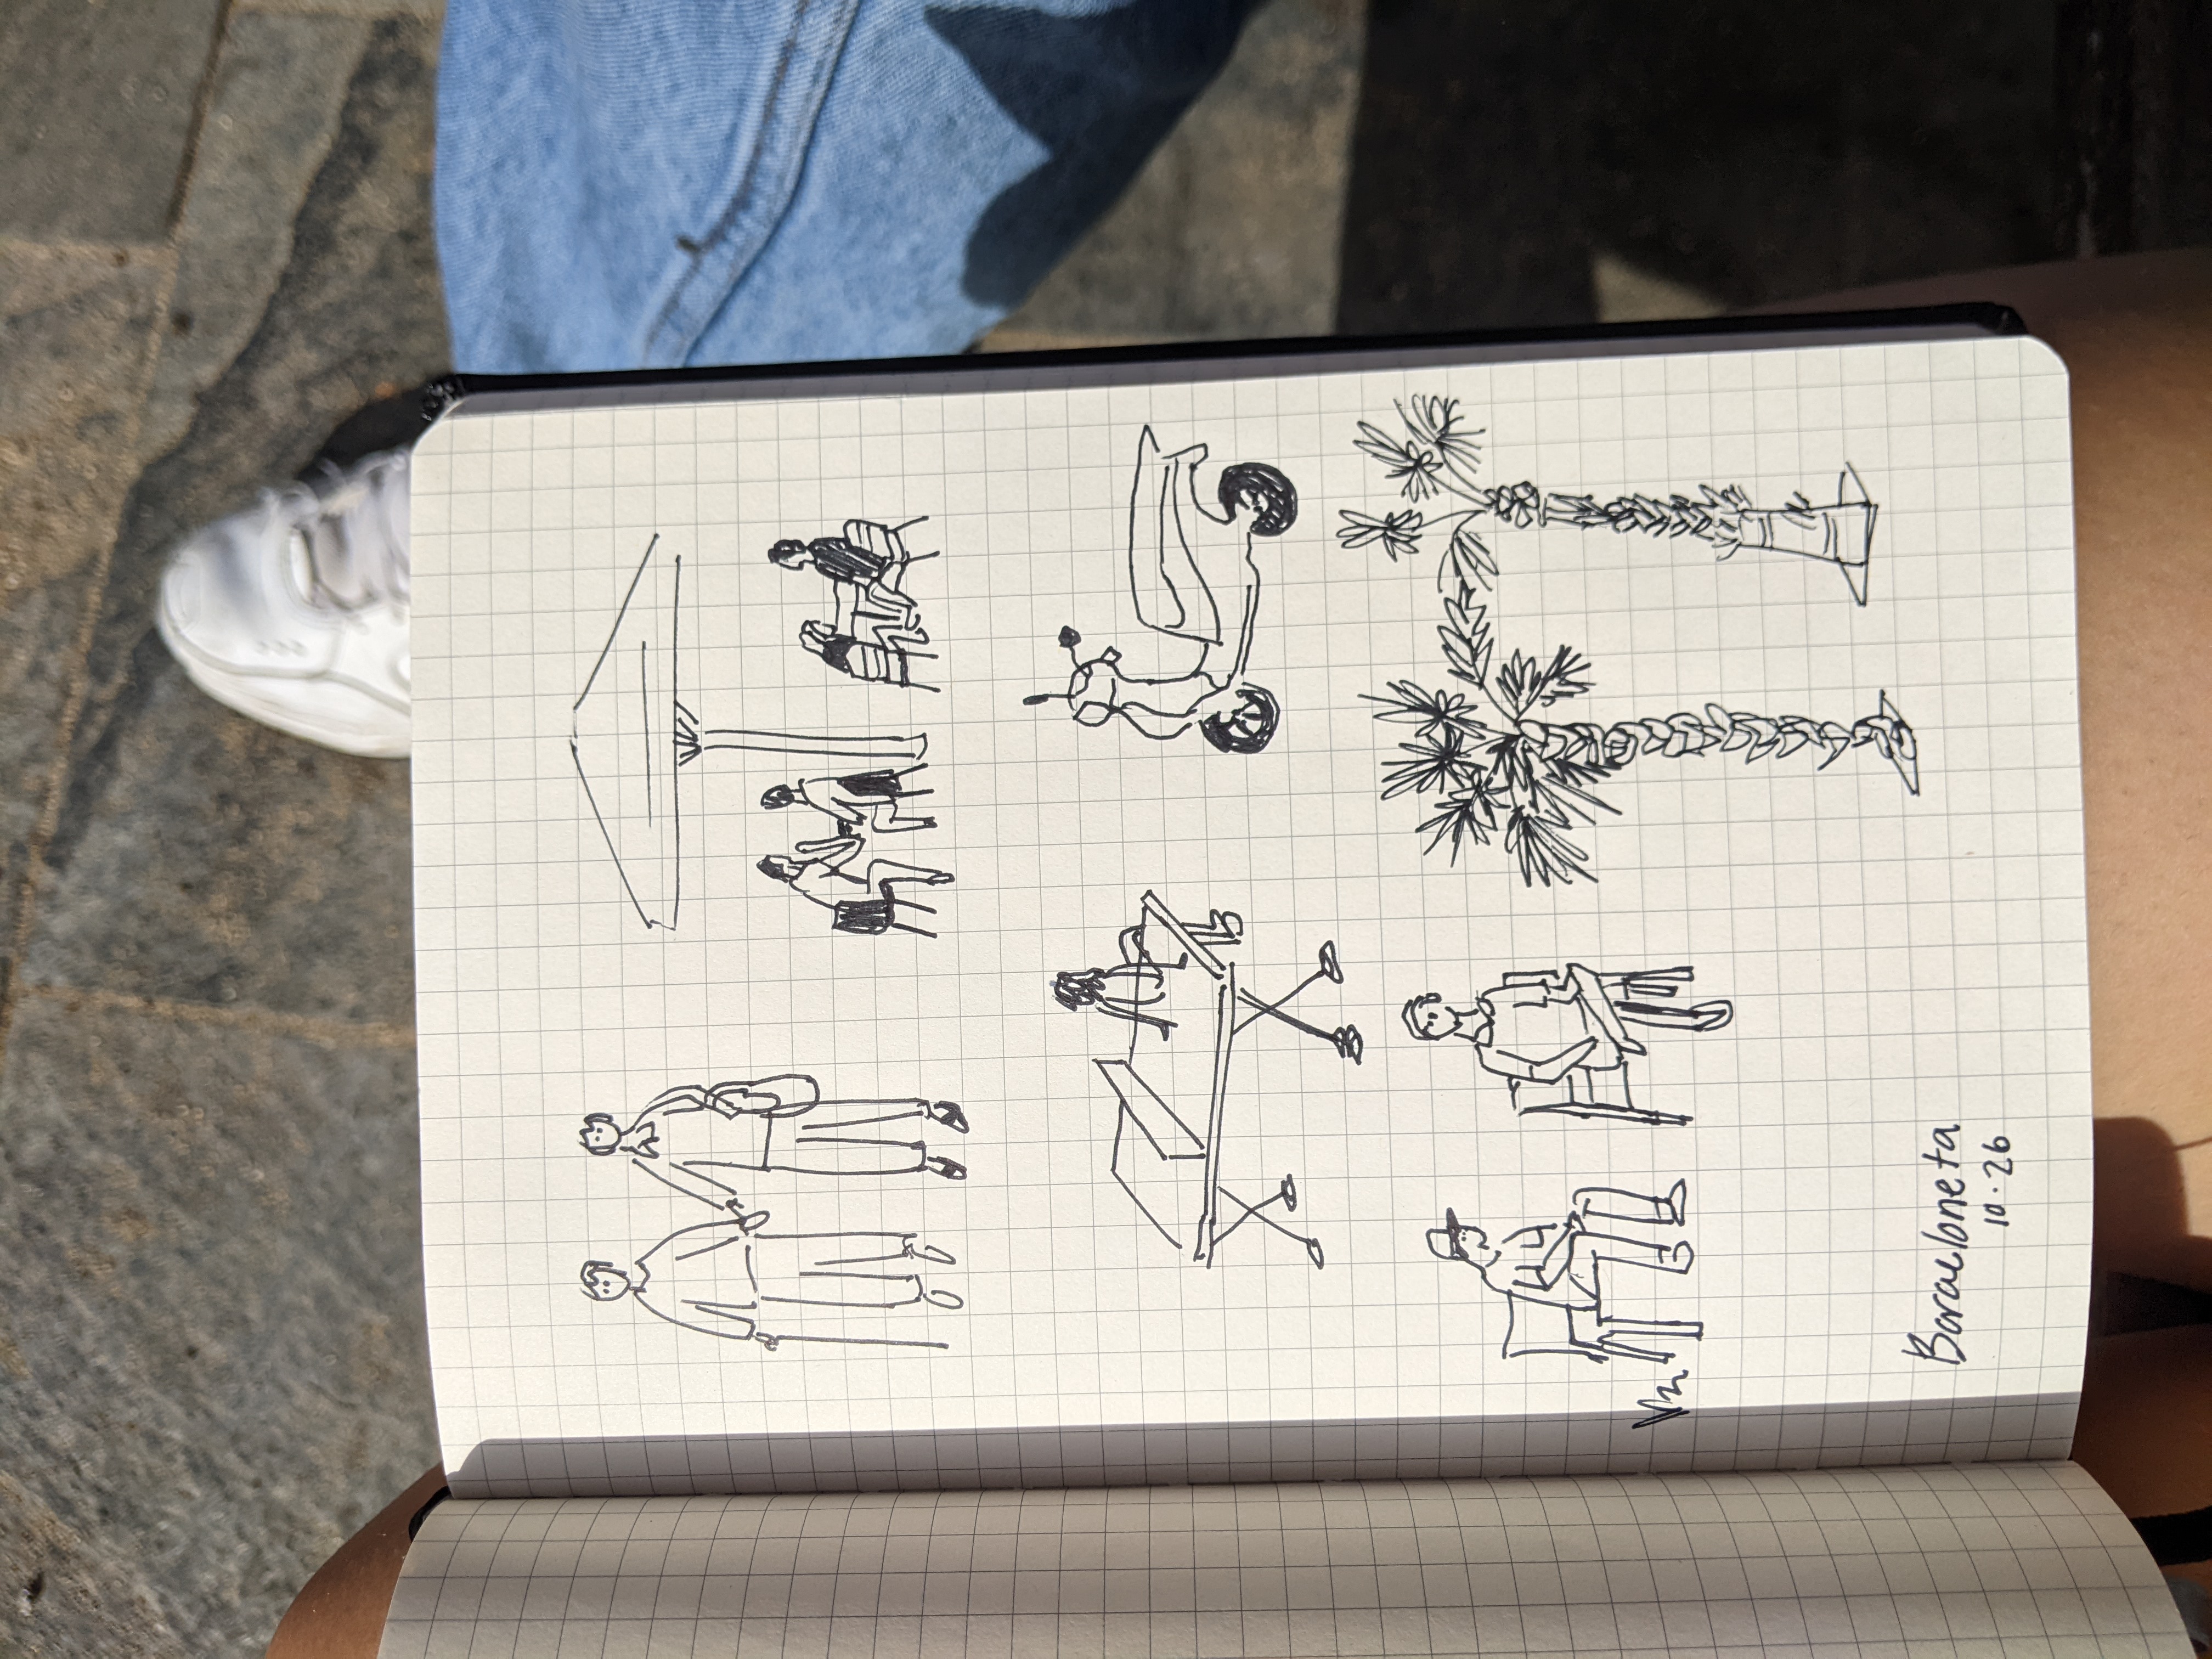 Baracloneta
10.26